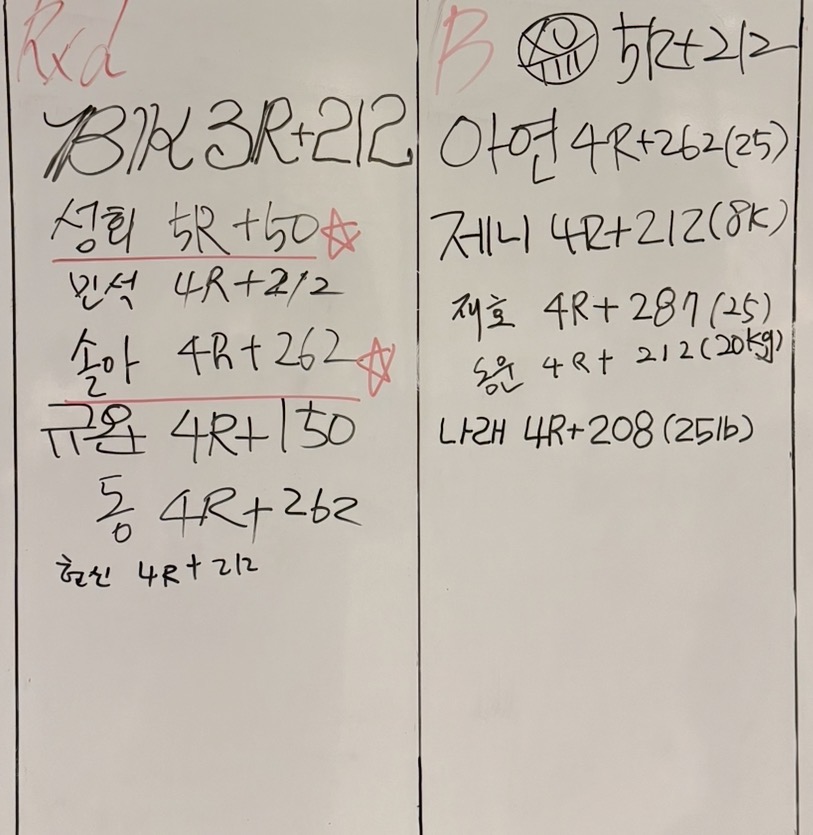 Rxd
YBIK 3R+212
성회 5R+50
민석 4R+212
솔아 4R+262
규완 4R+150
동 4R+262
현신 4R+212
B
5R+212
아연 4R+262(25)
제니 4R+212(8K)
재호 4R+287(25)
동윤 4R+ 212(20kg)
나래 4R+208(25lb)